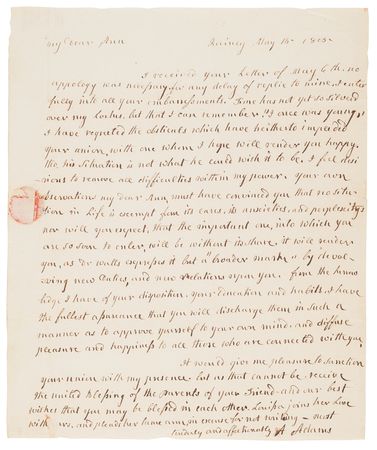 My dear Ann Quincy May 15 1805
I received your Letter of May 6th. no
appology was necessary for any delay of replie to mine. I enter
fully into all your embarassments. Time has not yet so silverd
over my Locks, but that I can remember "I once was young"
I have regreted the obsticals which have heitherto impeeded
your union, with one whom I hope will render you happy,
tho his situation is not what he could wish it to be. I feel desi
sious to remove all difficulties within my power. your own
observations my dear Ann must have convinced you that no situ
ation in Life is exempt from its cares, its anxieties, and perplexitys
nor will you expect, that the important one, into which you
are so soon to enter, will be without its share. it will render
you, as Dr Watts expresses it but a "broader mark" by devol
veing new Duties, and new Relations upon you. from the knowe
ledge I have of your disposition, your Education and habits, I have
the fullest assurance that you will discharge them in such a
manner as to approve yourself to your own mind. and diffuse
pleasure and happiness to all those who are connected with you
It would give me pleasure to sanction
your union with my presence. but as that cannot be receive
the united blessing of the Parents of your Friend and our best
wishes that you may be blessed in each other. Louisa joins her Love
with ours, and pleads her lame arm in excuse for not writing - most
tenderly and affectionatly A Adams